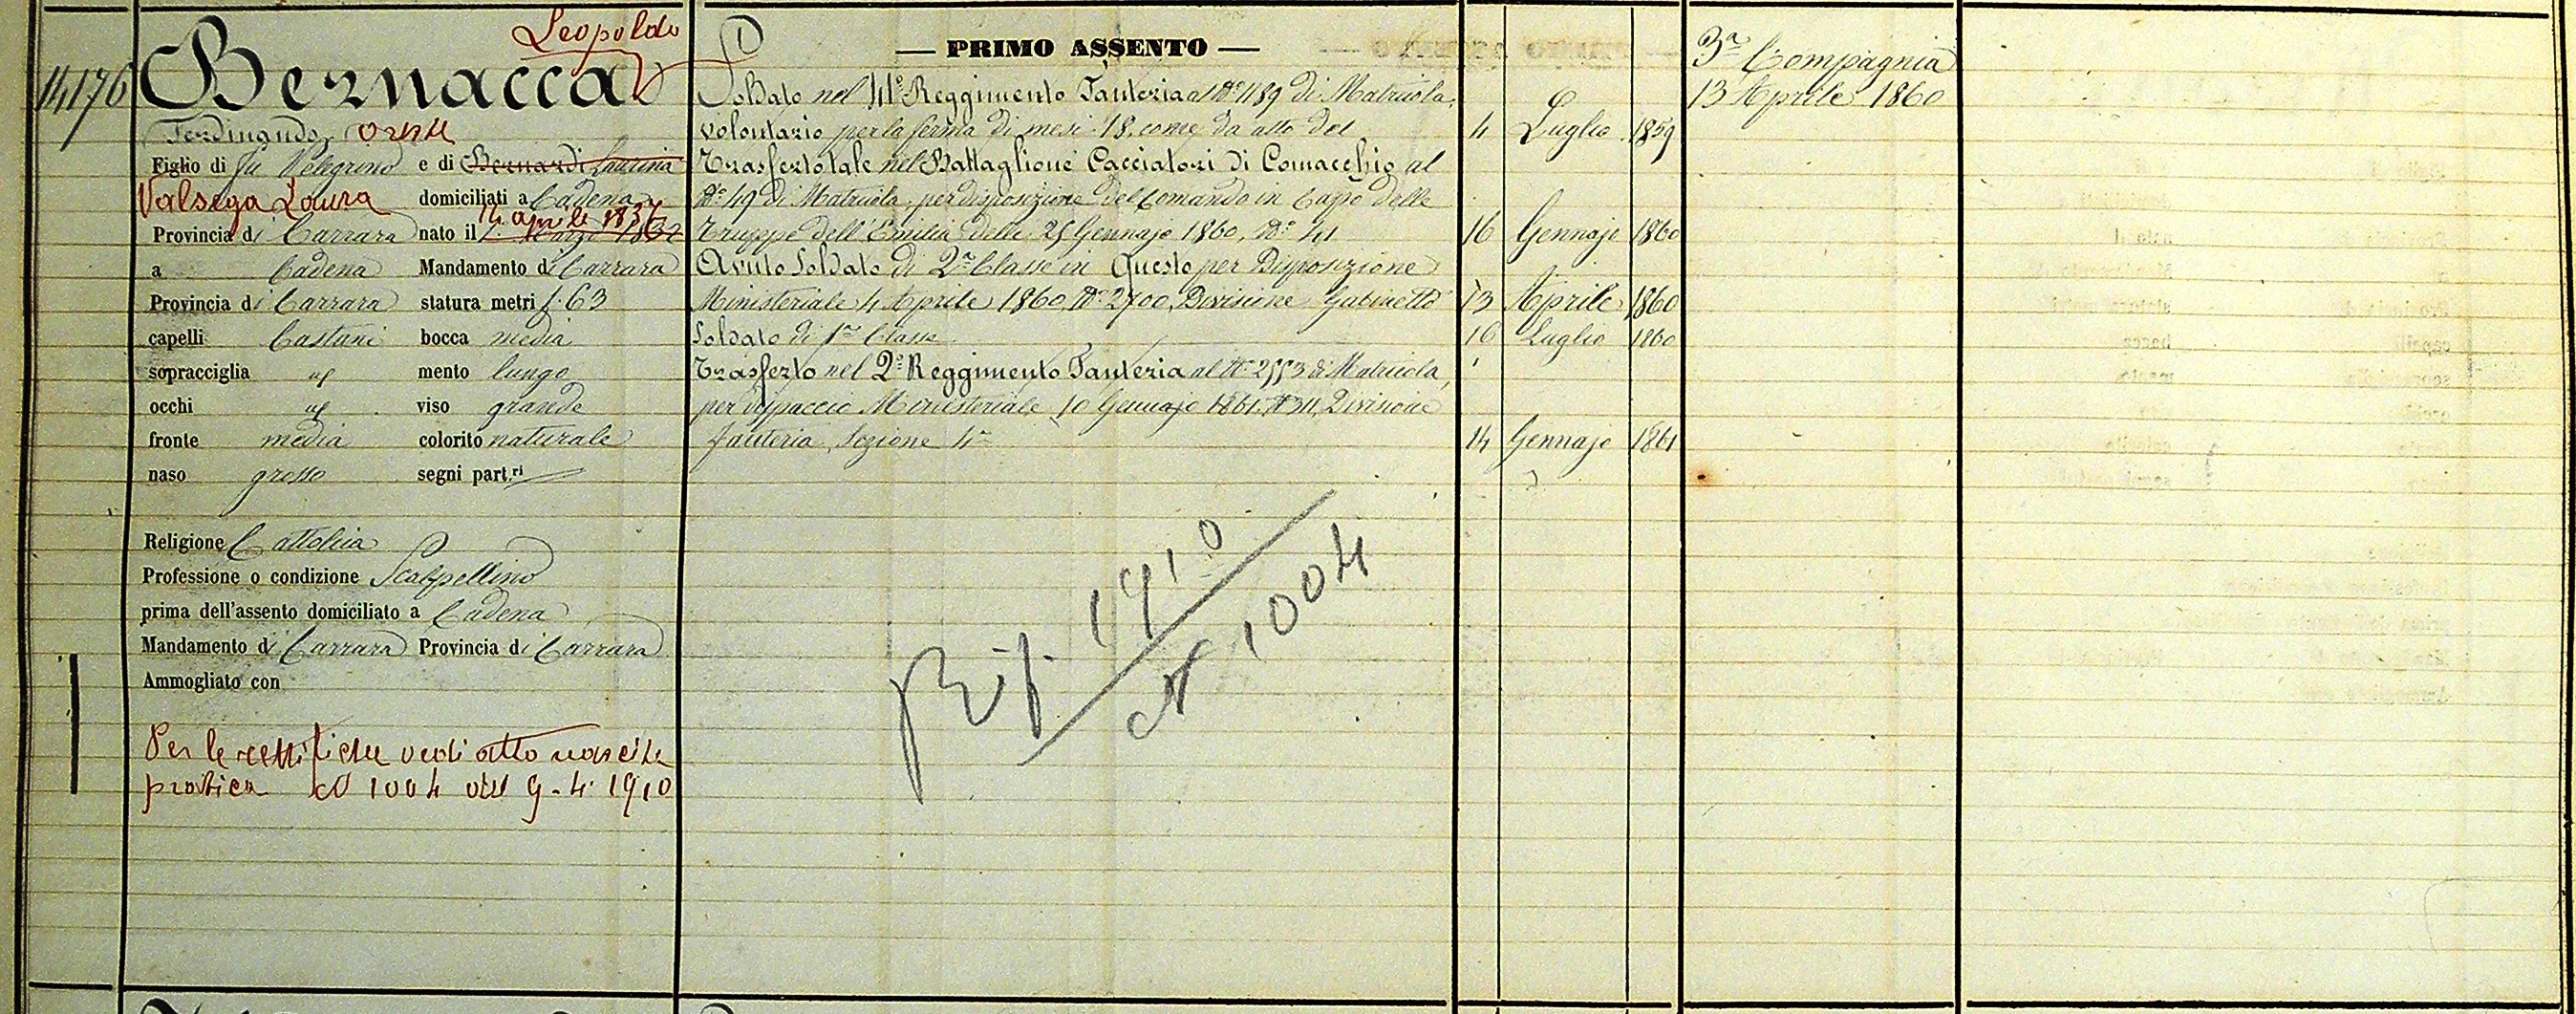 14176
Leopoldo
Bernacca
Ferdinando, Oreste
Figlio di fu Pelegrino e di Bernardi Laurina
Valsega Laura
domiciliati a Cadena
14 aprile 1836
Provincia di Carrara nato il 1° Marzo 1832
a Cadena Mandamento di Carrara
Provincia di Carrara statura metri 1.63
capelli Castani bocca media
sopracciglia id mento lungo
occhi id viso grande
fronte media colorito naturale
naso grosso segni part.ri
Religione Cattolica
Professione o condizione Scalpellino
prima dell'assento domiciliato a Cadena
Mandamento di Carrara Provincia di Carrara
Ammogliato con
Per le rettifiche vedi atto nascita
pratica N 1004 del 9-4-1910
— PRIMO ASSENTO —
Soldato nel 41° Reggimento Fanteria al N° 1189 di Matricola,
volontario per la ferma di mesi 18, come da atto del 4 Luglio 1859
Trasferto tale nel Battaglione Cacciatori di Comacchio al
N° 49 di Matricola, per disposizione del Comando in Capo delle
Truppe dell'Emilia delli 25 Gennajo 1860, N° 41 16 Gennajo 1860
Avuto Soldato di 2a Classe in Questo per Disposizione
Ministeriale 4 Aprile 1860, N° 2700, Divisione Gabinetto 13 Aprile 1860
Soldato di 1a Classe 16 Luglio 1860
Trasferto nel 2° Reggimento Fanteria al N° 2553 di Matricola,
per dispaccio Ministeriale 10 Gennajo 1861, N° 311, Divisione
fanteria, Sezione 4a 14 Gennajo 1861
Rif. 1910
N 1004
3a Compagnia
13 Aprile 1860